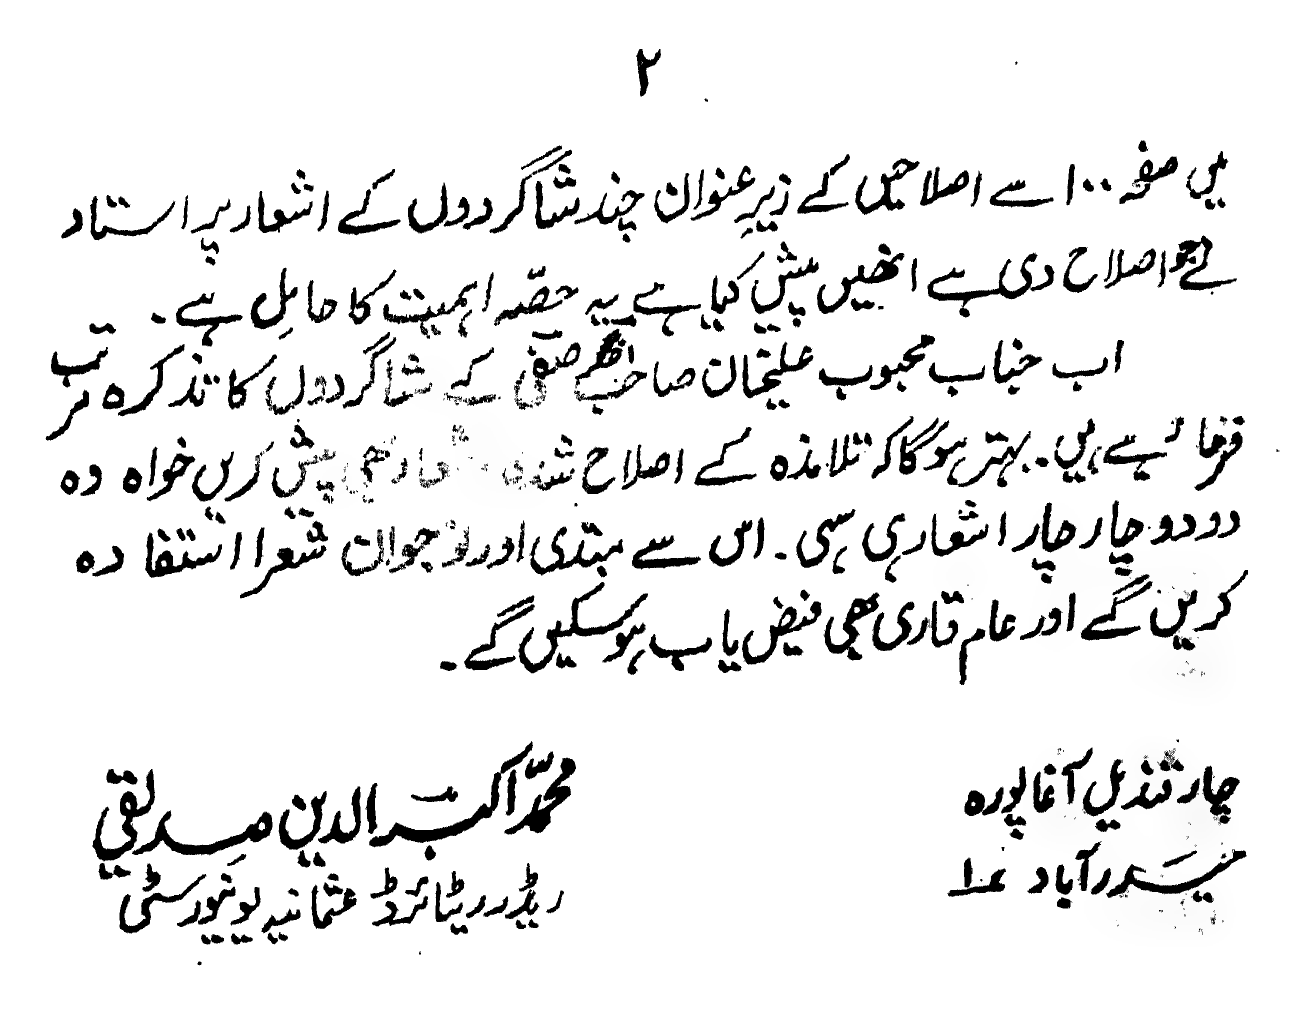 ۲
میں صفحہ ۱۰۰ سے اصلاحیں کے زیرِ عنوان چند شاگردوں کے اشعار پر استاد
نے جو اصلاح دی ہے انھیں پیش کیا ہے یہ حصّہ اہمیت کا حامِل ہے ۔
اب جناب محبوب علیخان صاحب اخگر صفی کے شاگردوں کا تذکرہ ترتیب
فرما رہے ہیں ۔ بہتر ہوگا کہ تلامذہ کے اصلاح شدہ اشعار بھی پیش کریں خواہ وہ
دو دو چار چار اشعار ہی سہی ۔ اس سے مبتدی اور نوجوان شعرا استفادہ
کریں گے اور عام قاری بھی فیض یاب ہو سکیں گے ۔
چار قندیل آغاپورہ
حیدرآباد ۱؎
محمدّ اکبر الدین صدیقی
ریڈر ریٹائرڈ عثمانیہ یونیورسٹی